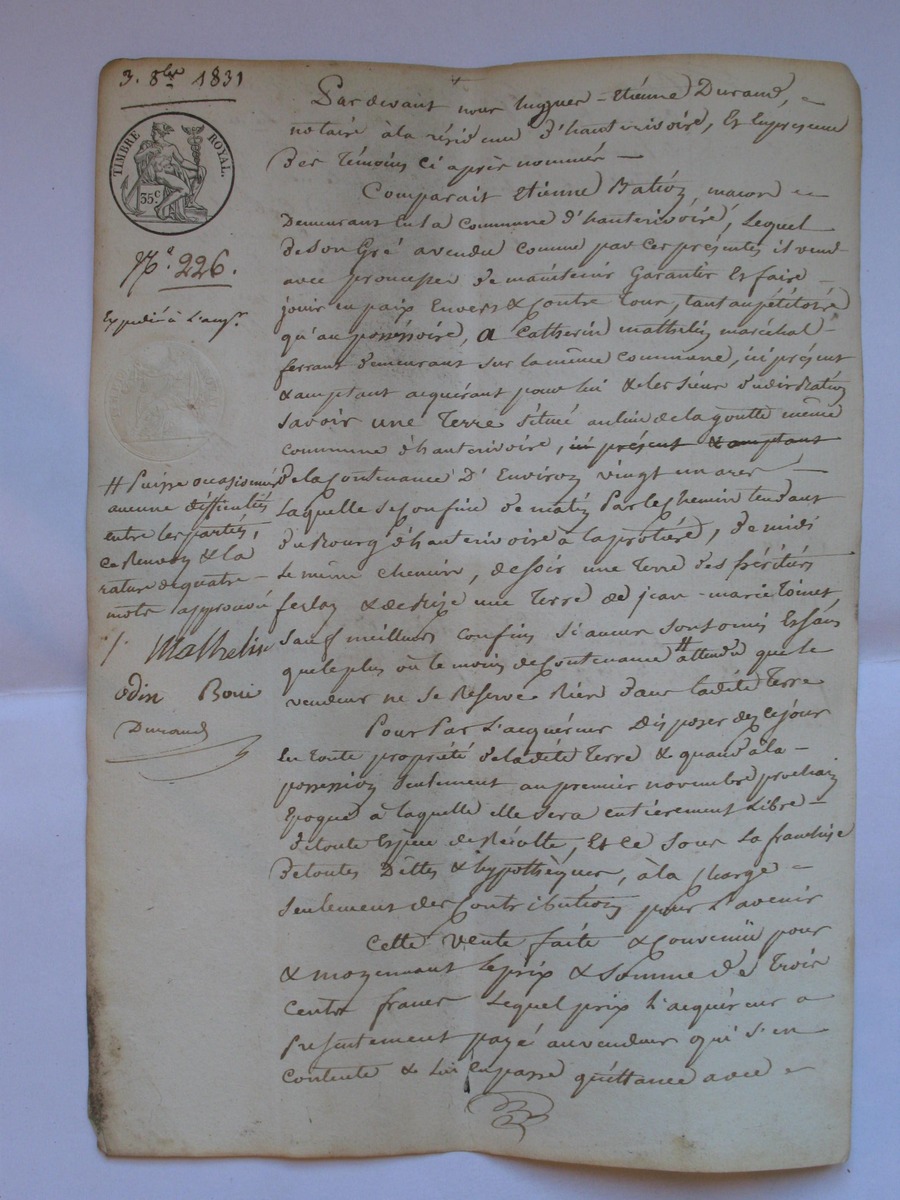 3. 8bre 1831
TIMBRE ROYAL.
35c
No. 226.
Expédié à l'acqr.
Par devant nous hugues-Etienne Durand,
notaire à la résidence d'hauterivoire, Et En presence
Des Témoins Ci après nommés
Comparait Etienne Bation, macon
Demeurant En la Commune d'hauterivoire, Lequel
De son Gré a vendu Comme par Ces présentes il vend
avec promesse De maintenir Garantir Et faire
jouir en paix Envers & Contre Tous, tant au pétitoire
qu'au possessoire, a Catherin mathelin maréchal
ferrant demeurant sur la même commune, ici présent
& acceptant acquérant pour lui & les siens dudit Bation
Savoir une Terre Située au lieu de la goutte même
Commune d'hauterivoire, ici présent & acceptant
De la Contenance D'Environ vingt un ares
Laquelle se Confine de matin Par le Chemin tendant
du Bourg d'hauterivoire à la , de midi
Le même chemin, de soir une Terre des héritiers
ferlay & de bize une Terre de jean-marie Toinet
Sauf meilleurs Confins Si aucuns sont omis Et sans
que le plus où le moins de Contenance # attendu que le
vendeur ne se Réserve Rien dans ladite Terre
# Puisse occasionner
aucune difficultés
entre les parties,
Ce Renvoy & la
rature de quatre
mots approuvés
Mathelin
odin Boni
Durand
Pour Par L'acquéreur Disposer dez Ce jour
En toute propriété de ladite Terre & quand à la
possession Seulement au premier novembre prochain
Epoque à laquelle elle Sera entièrement Libre
de toute Espèce de Récolte, Et Ce Sous La franchise
De toutes Dettes & hypothèques, à la Charge
Seulement des Contributions pour L'avenir
Cette Vente faite & Convenüe pour
& moyennant le prix & Somme De Trois
Cents francs Lequel prix L'acquéreur a
Présentement payé au vendeur qui S'en
Contente & Lui En passe quittance avec